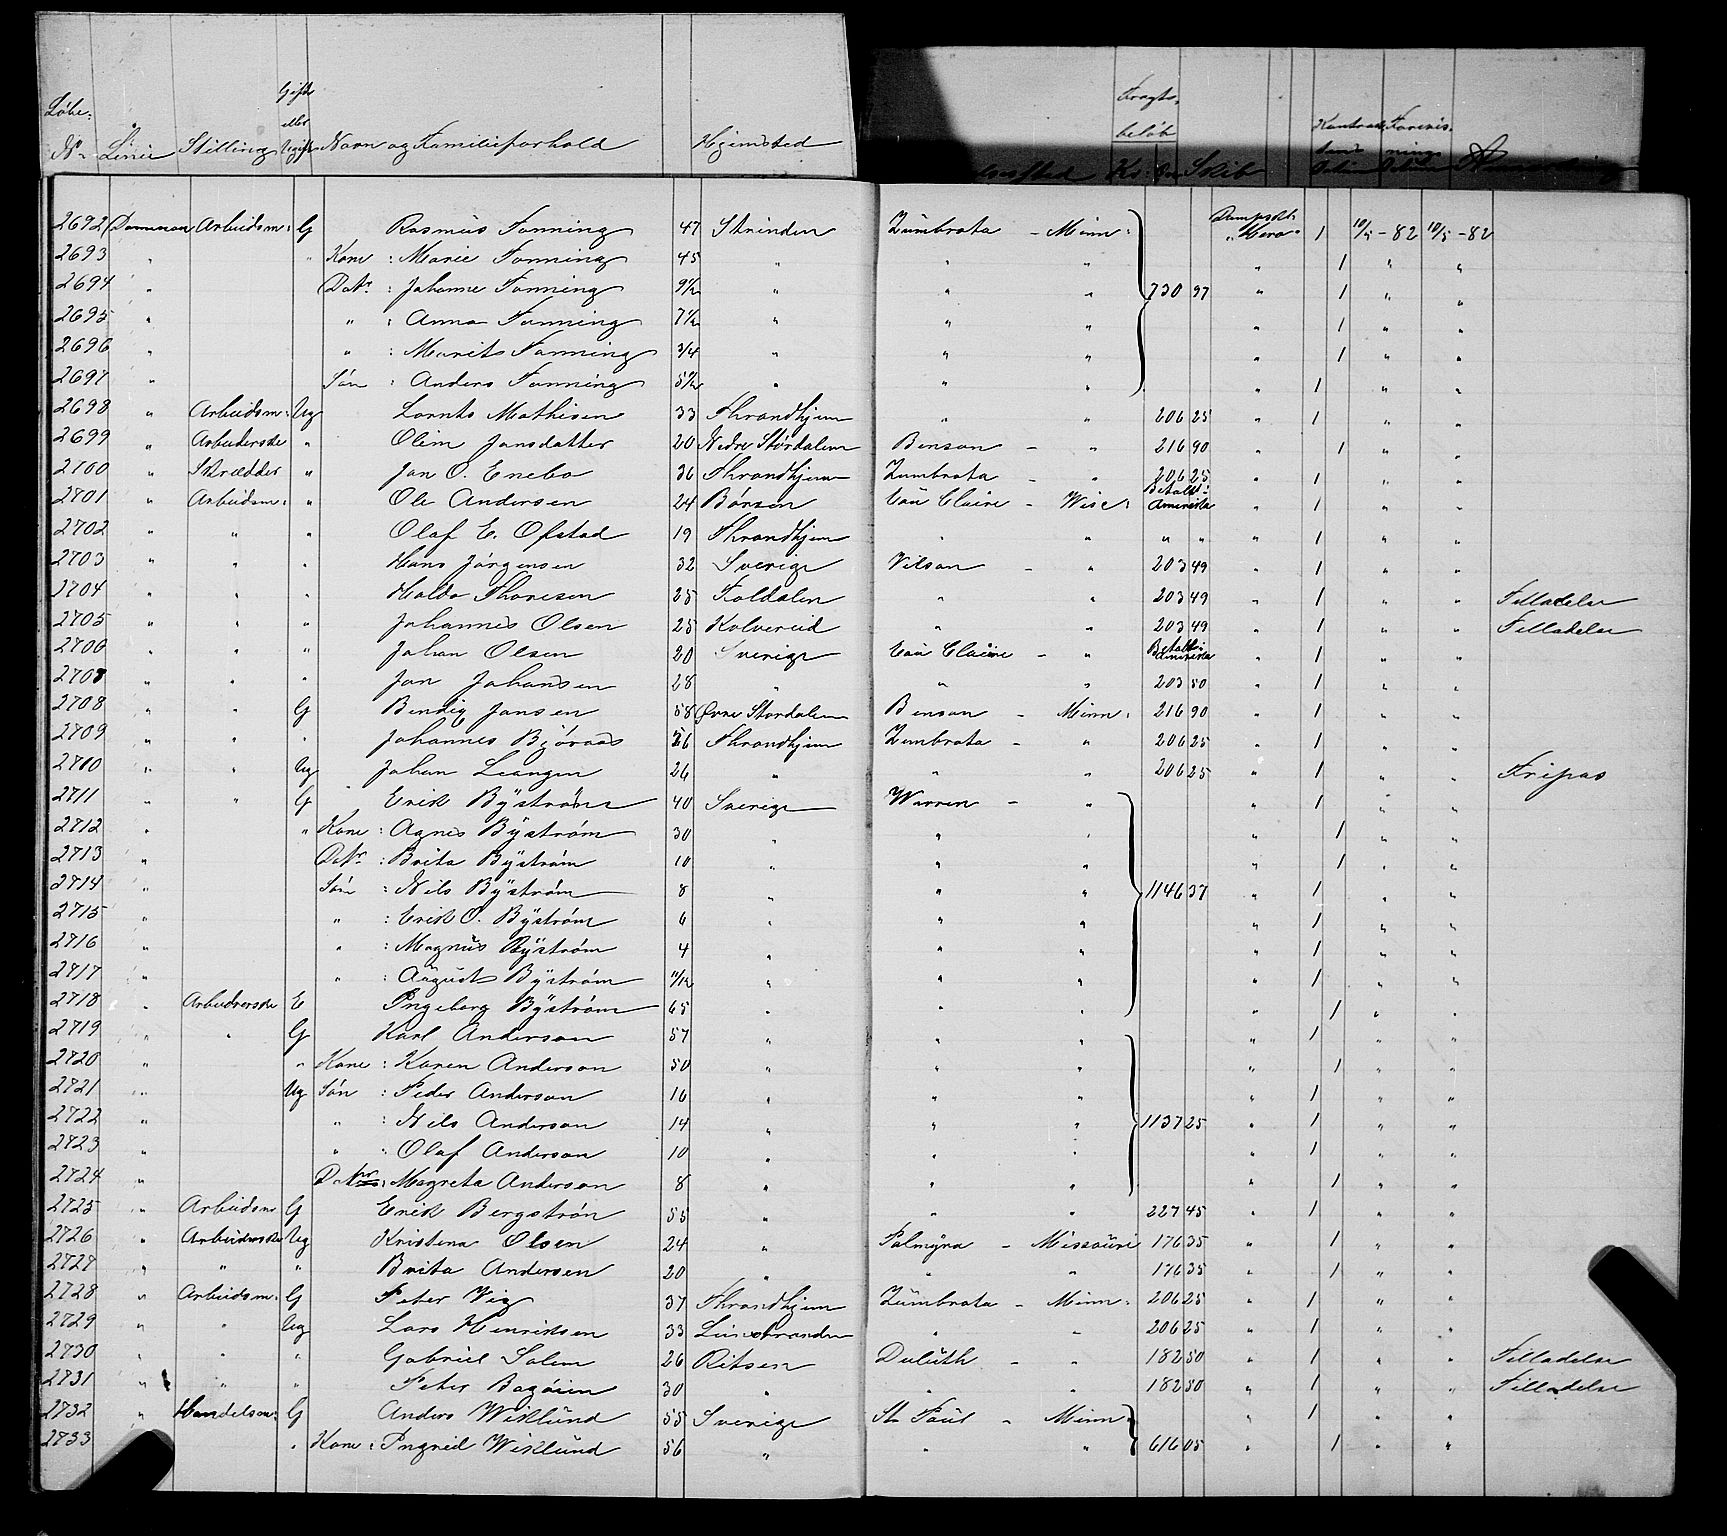 Løbe- № Linie Stilling Gift eller Ugift Navn og Familieforhold Hjemsted Fragtbeløb Kr. Øre Skib
2692 Dominion Arbeidsm: G Rasmus Fonning 47 Strinden Zumbrota - Minn: Dampsk. "Hero" 1 10/5 - 82 10/5 - 82
2693 " " Kone : Marie Fonning 45 " " " " 1 " "
2694 " Datr : Johanne Fonning 9½ " " " 730 97 " 1 " "
2695 " " : Anna Fonning 7½ " " " " 1 " "
2696 " " : Marit Fonning 3/4 " " " " 1 " "
2697 " Søn : Anders Fonning 5½ " " " " 1 " "
2698 " Arbeidsm: Ug Lornts Mathisen 33 Throndhjem " " 206 25 " 1 " "
2699 " Arbeiderske " Oline Jonsdatter 20 Nedre Størdalen Benson - " 216 90 " 1 " "
2700 " Skrædder " Jon O. Enebo 36 Throndhjem Zumbrota - " 206 25 " 1 " "
2701 " Arbeidsm: " Ole Andersen 24 Børsen Eau Claire - Wisc: Betalt i Amerika " 1 " "
2702 " " " Olaf E. Ofstad 19 Throndhjem " " " " " 1 " "
2703 " " " Hans Jørgensen 32 Sverige Vilson - " 203 49 " 1 " "
2704 " " " Haldo Thoresen 25 Foldalen " " 203 49 " 1 " " Tilladelse
2705 " " " Johannes Olsen 25 Kolvereid " " 203 49 " 1 " " Tilladelse
2706 " " " Johan Olsen 20 Sverige Eau Claire - " Betalt i Amerika " 1 " "
2707 " " " Jon Johansen 28 " " " 203 50 " 1 " "
2708 " " G Bendig Jonsen 58 Øvre Stordalen Benson - Minn: 216 90 " 1 " "
2709 " " " Johannes Bjøraas 26 Throndhjem Zumbrota - " 206 25 " 1 " "
2710 " " Ug Johan Leangen 26 " " " 206 25 " 1 " " Fripas
2711 " " G Erik Byström 40 Sverige Warren - " " 1 " "
2712 " " Kone : Agnes Byström 30 " " " " 1 " "
2713 " Datr : Brita Byström 10 " " " " 1 " "
2714 " Søn : Nils Byström 8 " " " 1146 37 " 1 " "
2715 " " : Erik O. Byström 6 " " " " 1 " "
2716 " " : Magnus Byström 4 " " " " 1 " "
2717 " " : August Byström 11/12 " " " " 1 " "
2718 " Arbeiderske E Ingeborg Byström 65 " " " " 1 " "
2719 " " G Karl Anderson 57 " " " " 1 " "
2720 " " Kone : Karen Anderson 50 " " " " 1 " "
2721 " Ug Søn : Peder Anderson 16 " " " " 1 " "
2722 " " : Nils Anderson 14 " " " 1137 25 " 1 " "
2723 " " : Olaf Anderson 10 " " " " 1 " "
2724 " Datr : Magreta Anderson 8 " " " " 1 " "
2725 " Arbeidsm G Erik Bergström 55 " " " 227 45 " 1 " "
2726 " Arbeiderske Ug Kristina Olsen 24 " Palmyra - Missouri 176 35 " 1 " "
2727 " " " Brita Andersen 20 " " " 176 35 " 1 " "
2728 " Arbeidsm: G Peter Vig 37 Throndhjem Zumbrota - Minn: 206 25 " 1 " "
2729 " " Ug Lars Henriksen 33 " " 206 25 " 1 " "
2730 " " " Gabriel Salem 26 Ritsen Duluth - " 182 50 " 1 " " Tilladelse
2731 " " " Peter 30 " " " 182 50 " 1 " " Tilladelse
2732 " Handelsm: G Anders Wiklund 55 Sverige St Paul - Minn " 1 " "
2733 " Kone : Ingrid Wiklund 56 " " " 616 05 " 1 " "